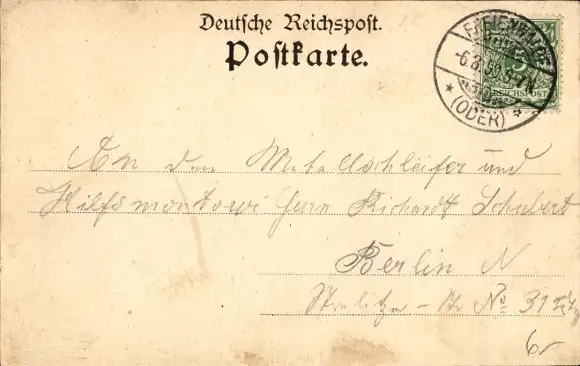 Deutsche Reichspost.
Postkarte.
FREIENWALDE
(ODER)
REICHSPOST
An den Metallschleifer und
Hilfsmonteur Herrn Richardt Schubert
Berlin N
Strelitzer-Str No 31